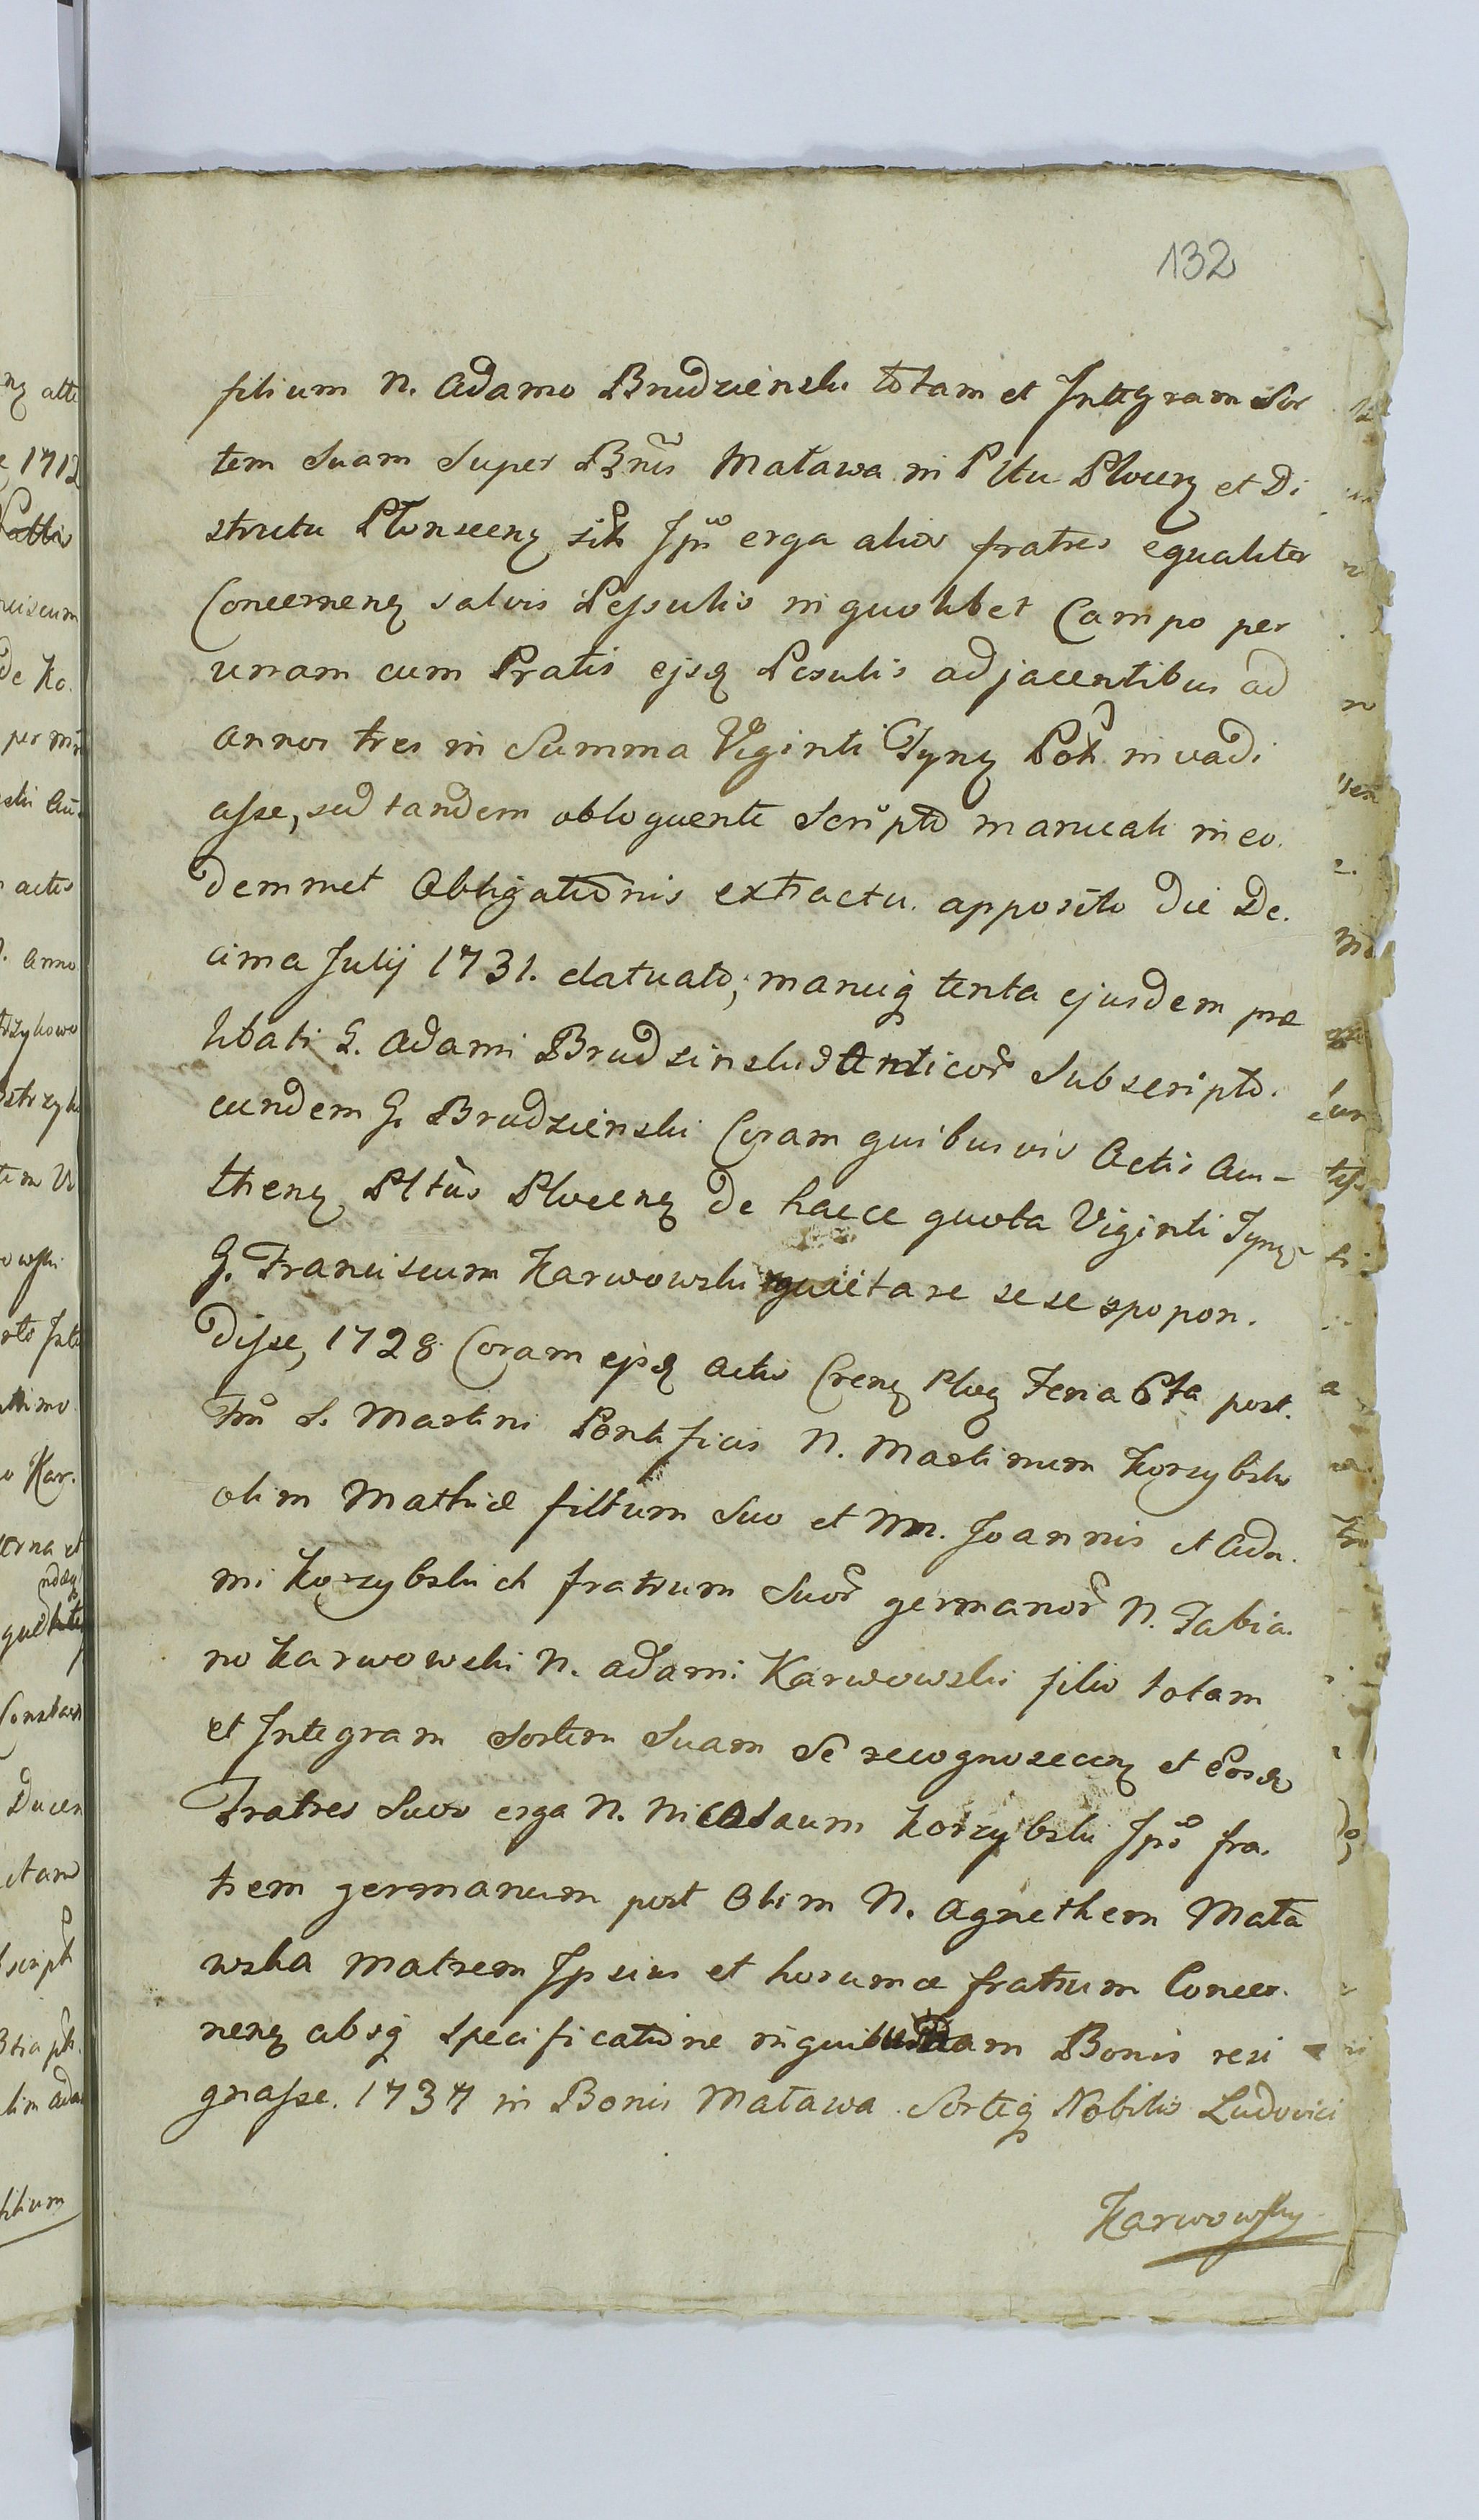 132
filium N. Adamo Brudzienski totam et Integram Sor
tem Suam Super Bnis Matawa in Pltu Plocen et Di
strictu Płonscen sibi Ipsi erga alios fratres equaliter
Concernen salvis Pessulis in quolibet Campo per
unam cum Pratis ejsd Pesulis adjacentibus ad
annos tres in Summa Viginti Tynf Pol invadi
asse, sed tandem obloquente Scripto manuali in eo.
demmet Obligationis extractu apposito die De.
cima Julij 1731. datuato, manuq tenta ejusdem præ
libati G. Adami Brudzinski Subscripto.
eundem G. Brudzienski Coram quibusvis Actis Au-
then Pltus Plocen de haece quota Viginti Tynf
G. Franciscum Karwowski quietare sese spopon.
disse, 1728 Coram ejsd actis Cren Ploc Feria 6ta post.
Ftu S. Martini Pontificis N. Martinum Korzybski
olim Mathiæ filium Suo et Nn. Joannis et Ada.
mi Korzybskich fratrum Suor germanor N. Fabia.
no Karwowski N. Adami Karwowski filio totam
et Integram Sortem Suam Se recognoscen et Eosd
Fratres Suos erga N. Nicolaum Korzybski Ipso fra.
trem germanum post Olim N. Agnethem Mata
wska Matrem Ipsius et horumce fratrum Concer.
nen absq specificatione in quibusdam Bonis resi
gnasse. 1737 in Bonis Matawa Sorteq Nobilis Ludovici
Karwowsky